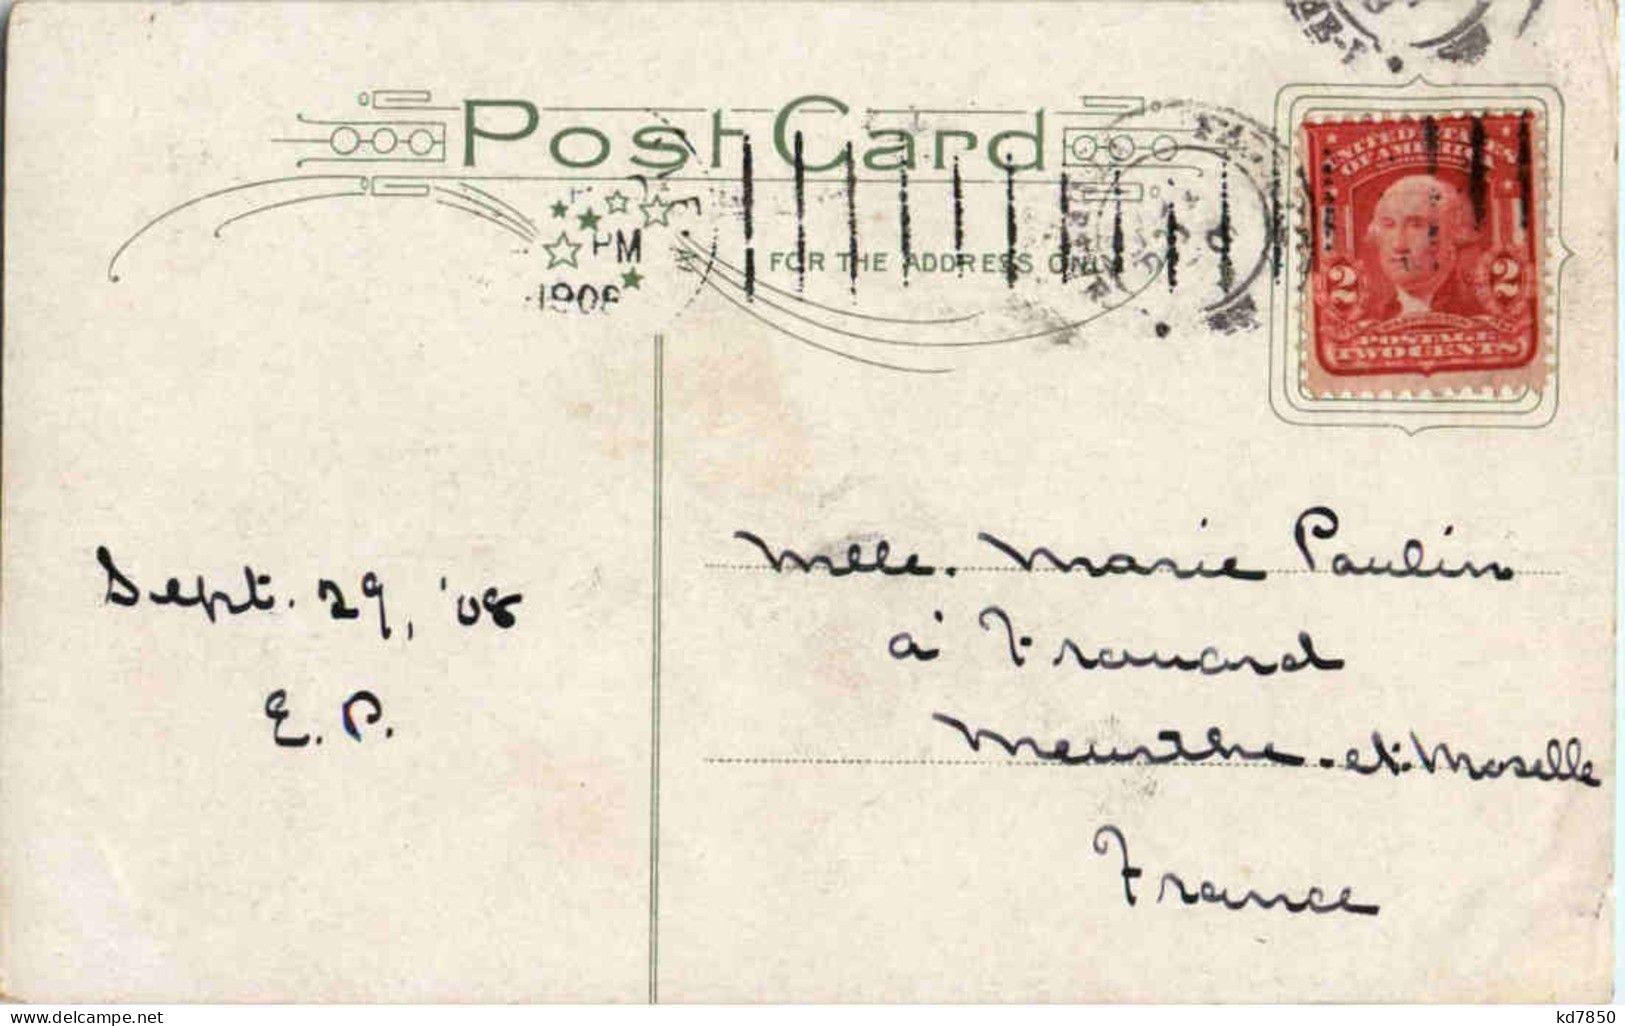 Post Card
PM
FOR THE ADDRESS ONLY
UNITED STATES
OF AMERICA
2 2
POSTAGE
TWO CENTS
Sept. 29, '08
E. P.
Mlle. Marie Paulin
à Frouard
Meurthe-et-Moselle
France
kd7850